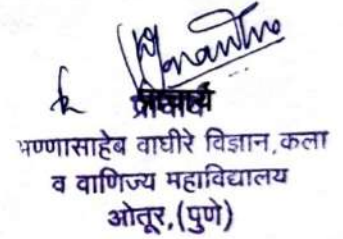 प्राचार्य
अण्णासाहेब वाघीरे विज्ञान,कला
व वाणिज्य महाविद्यालय
ओतूर,(पुणे)